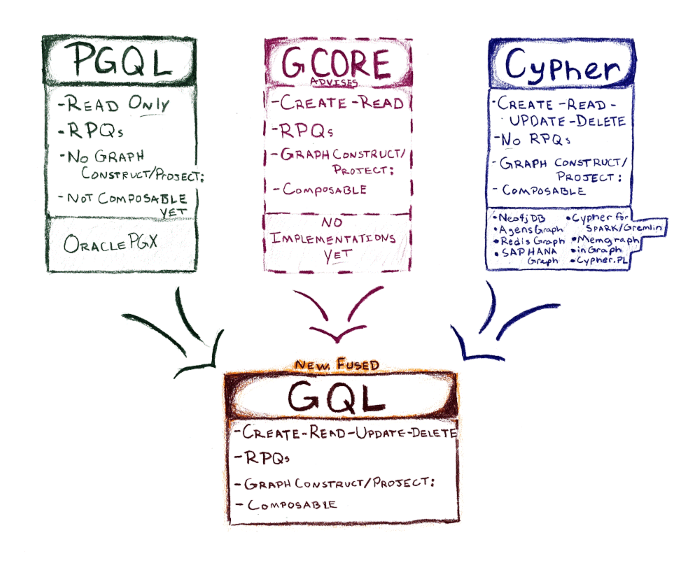 PGQL
- READ ONLY
- RPQs
- NO GRAPH
CONSTRUCT/PROJECT:
- NOT COMPOSABLE
YET
ORACLE PGX
GCORE
ADVISES
- CREATE - READ
- RPQs
- GRAPH CONSTRUCT/
PROJECT:
- COMPOSABLE
NO
IMPLEMENTATIONS
YET
Cypher
- CREATE - READ -
UPDATE - DELETE
- NO RPQs
- GRAPH CONSTRUCT/
PROJECT:
- COMPOSABLE
• Neo4j DB
• AgensGraph
• Redis Graph
• SAP HANA
Graph
• Cypher for
SPARK/Gremlin
• Memgraph
• inGraph
• Cypher.PL
NEW, FUSED
GQL
- CREATE - READ - UPDATE - DELETE
- RPQs
- GRAPH CONSTRUCT/PROJECT:
- COMPOSABLE